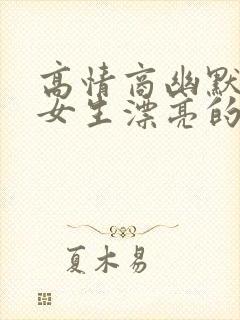 高情商幽默
女生漂亮的
夏木易